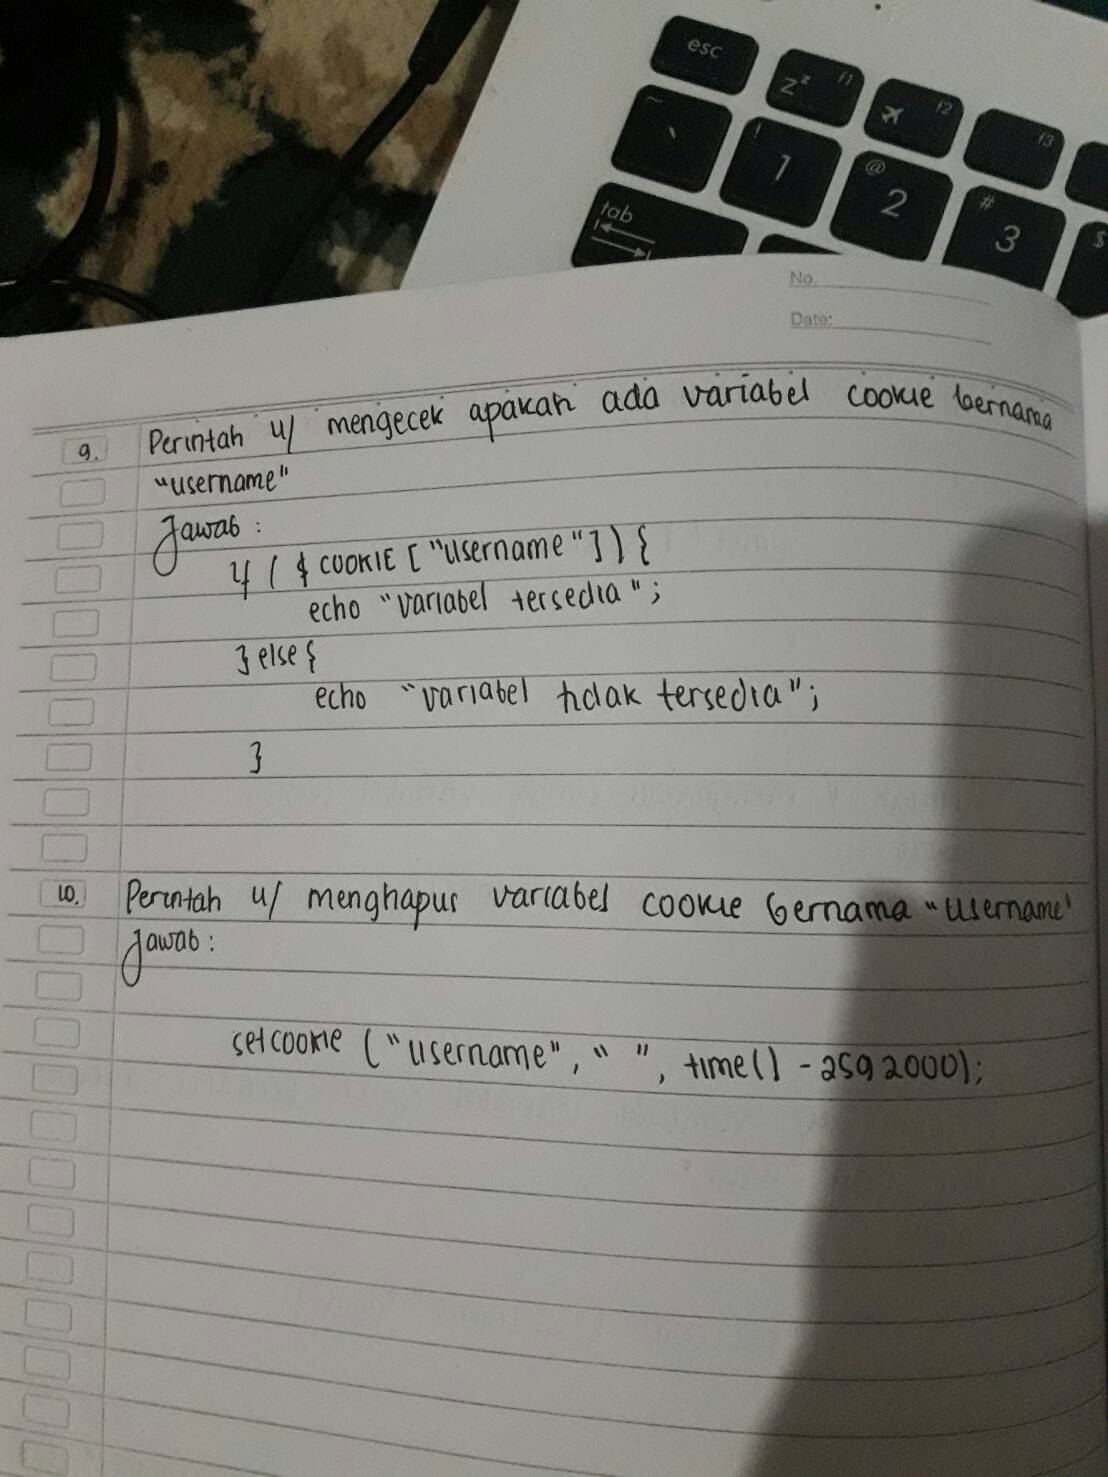 esc
z^z f1
f2
f3
~ `
! 1
@ 2
# 3
$
tab
No.
Date:
9. Perintah u/ mengecek apakah ada variabel cookie bernama
"username"
Jawab :
if ( $ COOKIE [ "username" ] ) {
echo "variabel tersedia" ;
} else {
echo "variabel tidak tersedia" ;
}
10. Perintah u/ menghapus variabel cookie bernama "username"
Jawab :
setcookie ("username", " ", time() - 2592000);